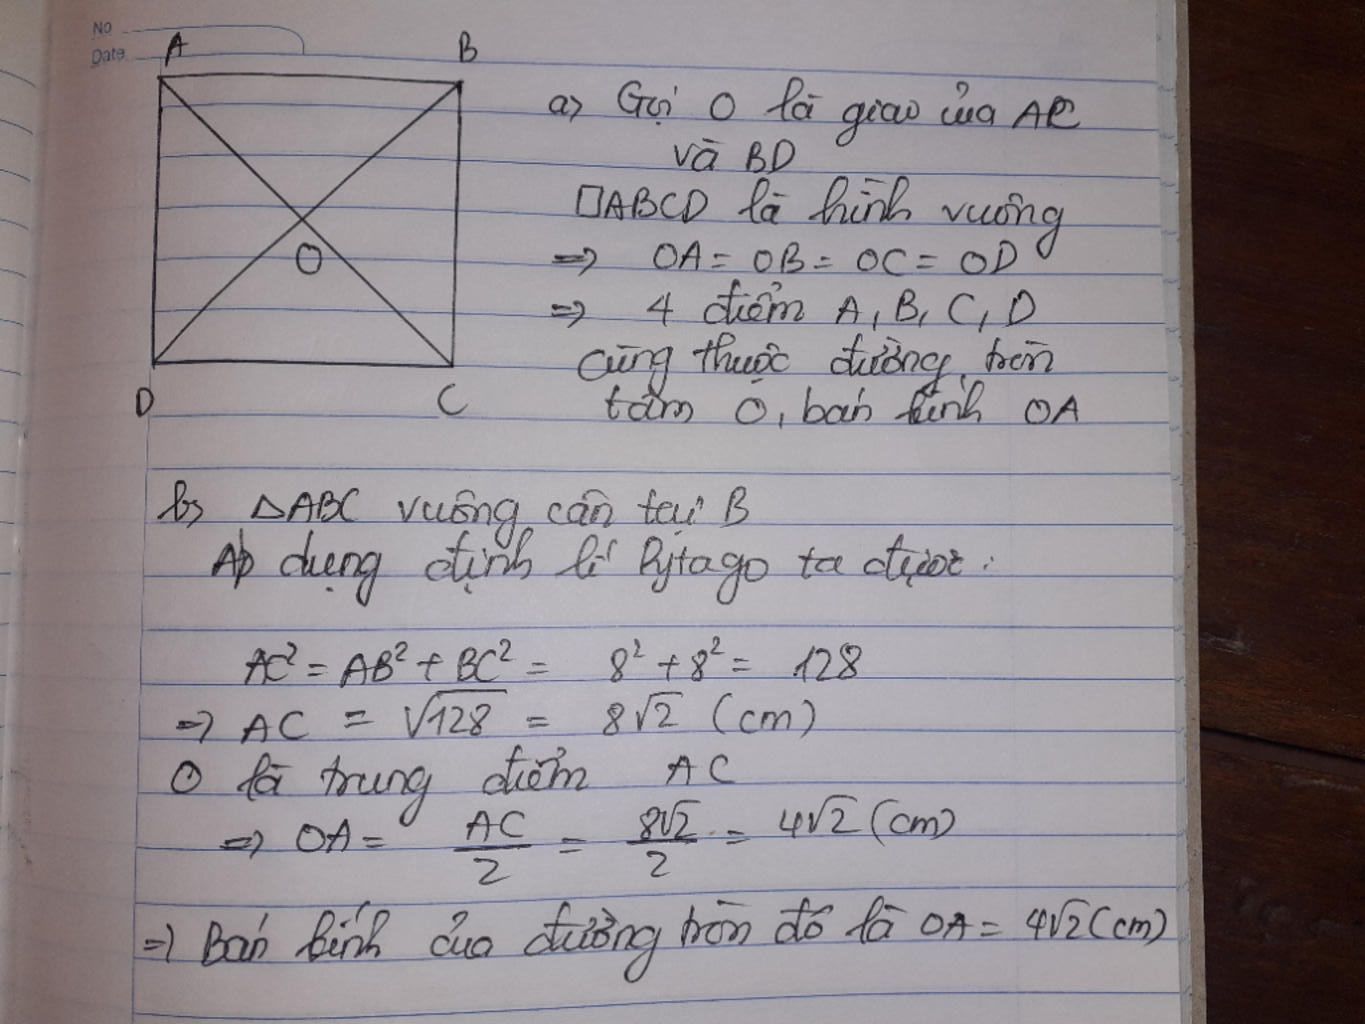 No
Date
A B
a) Gọi O là giao của AC
và BD
□ABCD là hình vuông
=> OA = OB = OC = OD
O
=> 4 điểm A, B, C, D
cùng thuộc đường tròn
D C
tâm O, bán kính OA
b) △ABC vuông cân tại B
Áp dụng định lí Pytago ta được:
AC² = AB² + BC² = 8² + 8² = 128
=> AC = √128 = 8√2 (cm)
O là trung điểm AC
=> OA = AC/2 = 8√2/2 = 4√2 (cm)
=> Bán kính của đường tròn đó là OA = 4√2 (cm)